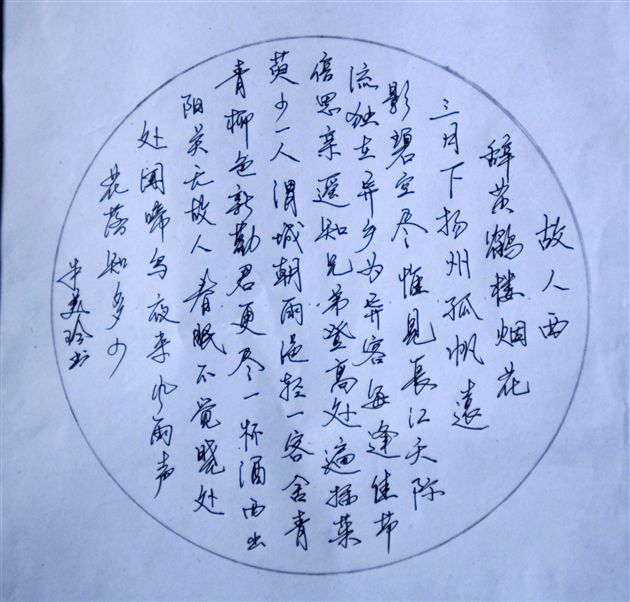 故人西
辞黄鹤楼烟花
三月下扬州孤帆遠
影碧空尽惟见長江天际
流独在异乡为异客每逢佳节
倍思亲遥知兄弟登高处遍插茱
萸少一人渭城朝雨浥轻一客舍青
青柳色新勸君更尽一杯酒西出
阳关无故人春眠不觉晓处
处闻啼鸟夜来风雨声
花落知多少
美玲书